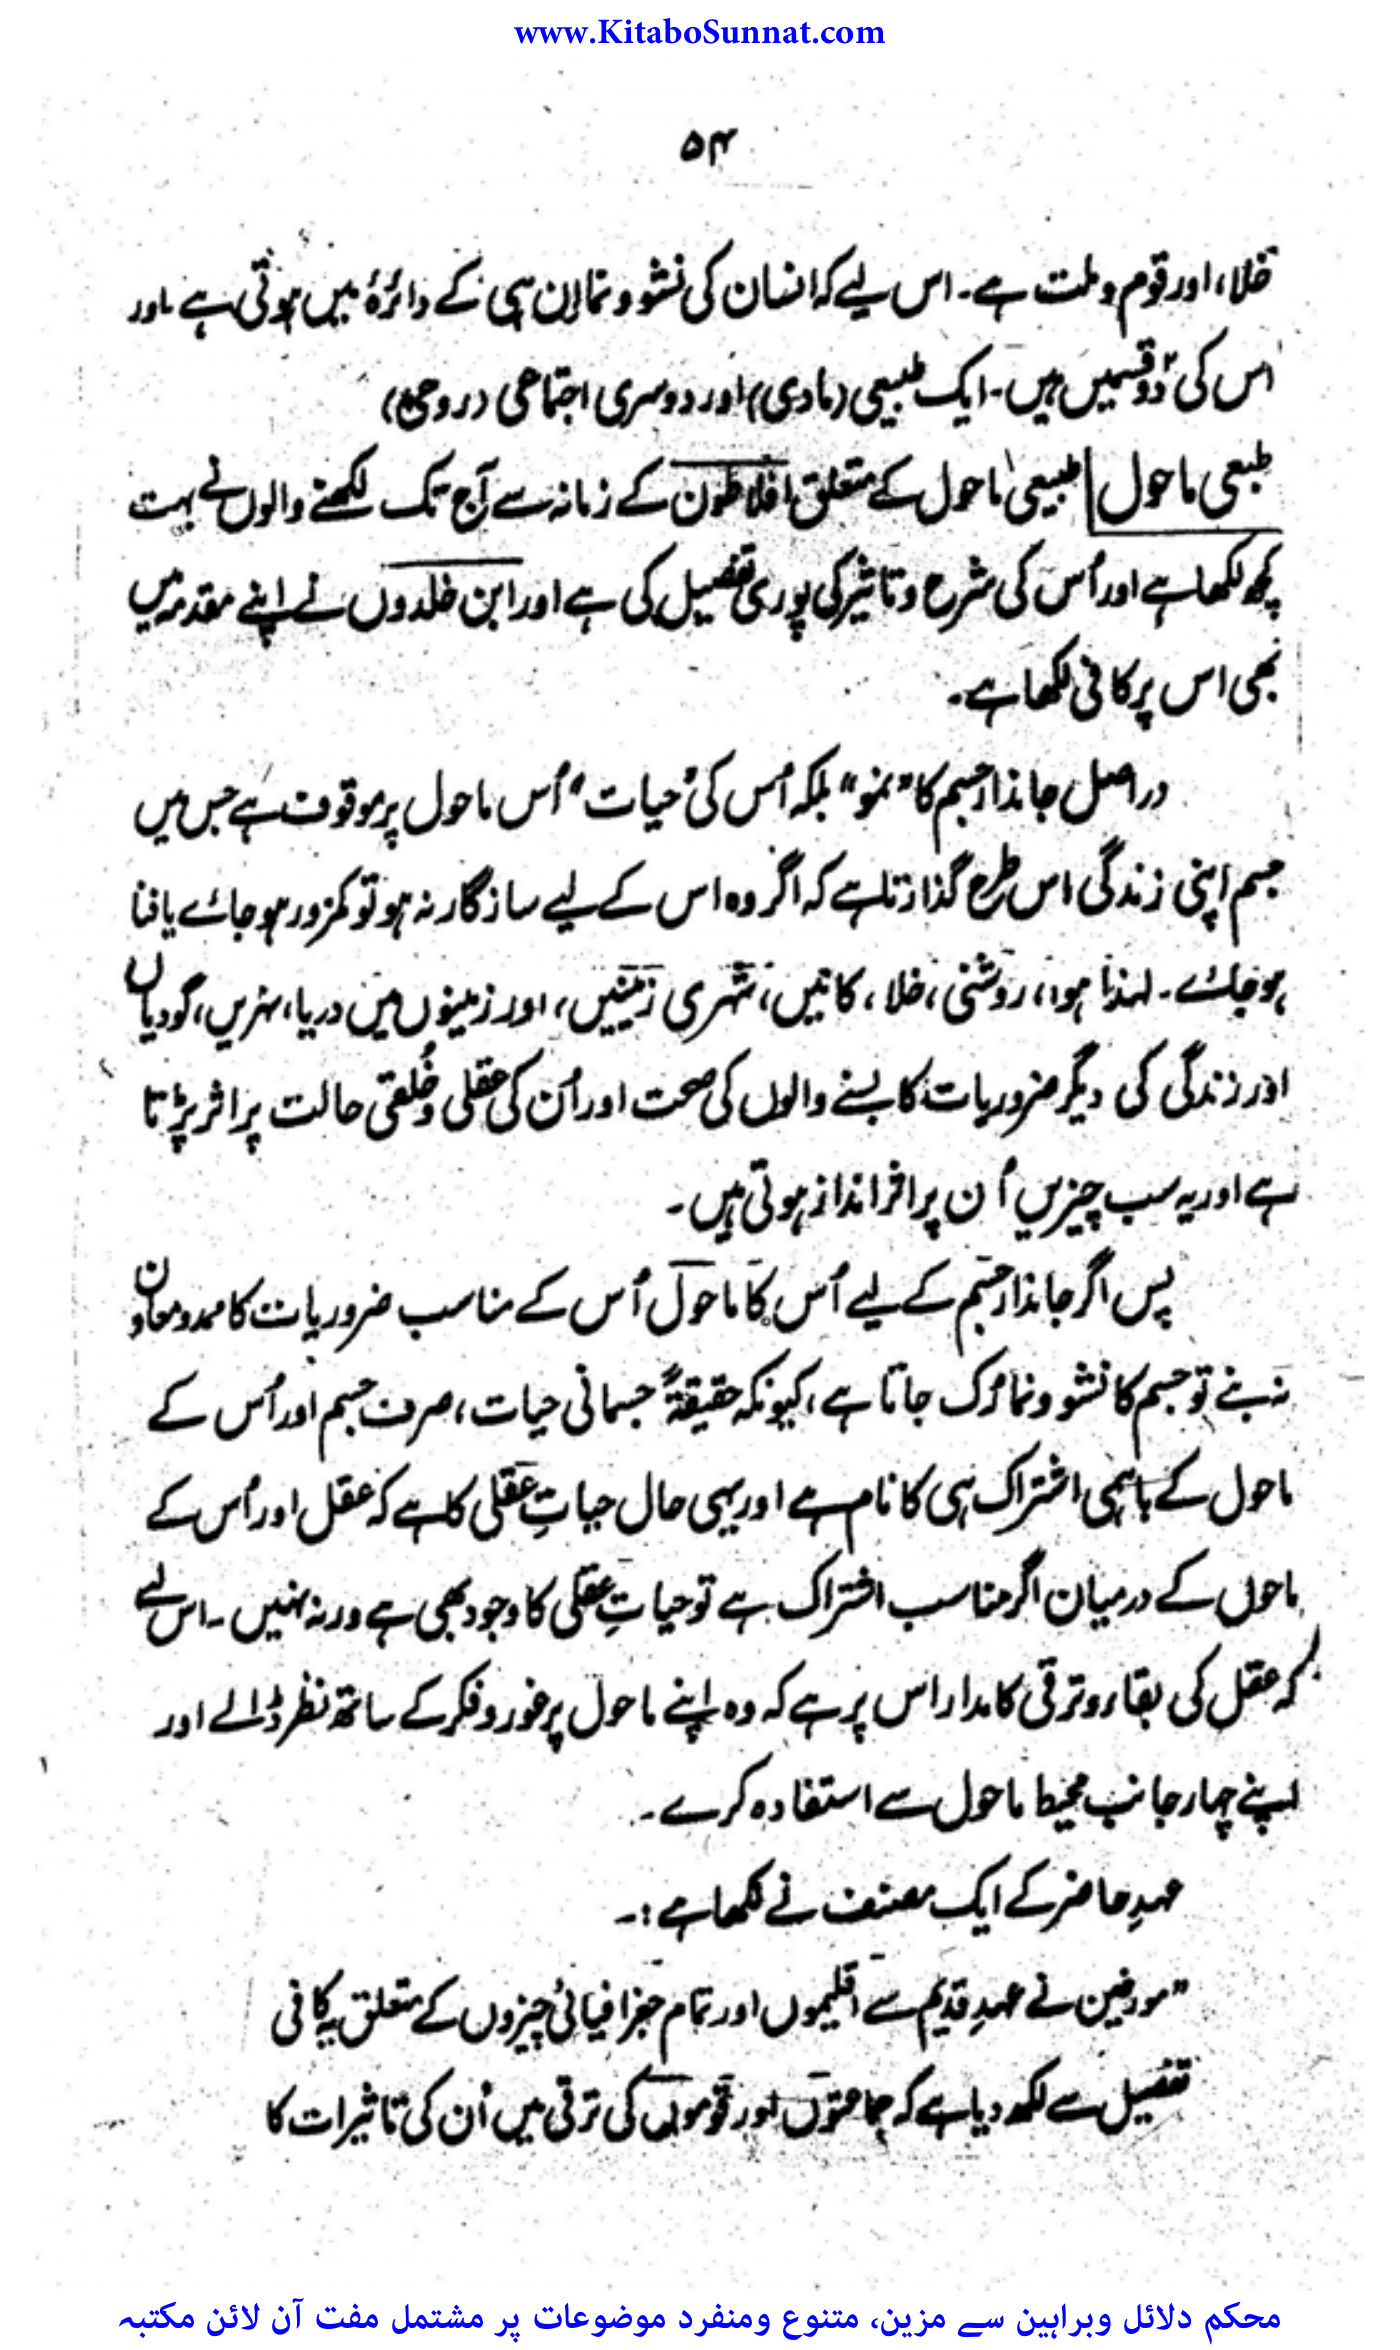 www.KitaboSunnat.com
۵۴
خلاء، اور قوم و ملت ہے۔ اس لیے کہ انسان کی نشو و نما ان ہی کے دائرہ میں ہوتی ہے اور
اس کی دو قسمیں ہیں۔ ایک طبیعی (مادی) اور دوسری اجتماعی (روحی)
طبعی ماحول | طبیعی ماحول کے متعلق افلاطون کے زمانہ سے آج تک لکھنے والوں نے بہت
کچھ لکھا ہے اور اُس کی شرح و تاثیر کی پوری تفصیل کی ہے اور ابن خلدوں نے اپنے مقدمہ میں
بھی اس پر کافی لکھا ہے۔
در اصل جاندار جسم کا "نمو" بلکہ اُس کی "حیات" اُس ماحول پر موقوف ہے جس میں
جسم اپنی زندگی اس طرح گذارتا ہے کہ اگر وہ اس کے لیے سازگار نہ ہو تو کمزور ہو جائے یا فنا
ہو جائے۔ لہذا ہوا، روشنی، خلا، کانیں، شہری زمینیں، اور زمینوں میں دریا، نہریں، گودیاں
اور زندگی کی دیگر ضروریات کا بسنے والوں کی صحت اور اُن کی عقلی و خُلقی حالت پر اثر پڑتا
ہے اور یہ سب چیزیں اُن پر اثر انداز ہوتی ہیں۔
پس اگر جاندار جسم کے لیے اُس کا ماحول اُس کے مناسب ضروریات کا ممد و معاون
نہ بنے تو جسم کا نشو و نما رُک جاتا ہے، کیونکہ حقیقۃً جسمانی حیات، صرف جسم اور اُس کے
ماحول کے باہمی اشتراک ہی کا نام ہے اور یہی حال حیاتِ عقلی کا ہے کہ عقل اور اُس کے
ماحول کے درمیان اگر مناسب اشتراک ہے تو حیاتِ عقلی کا وجود بھی ہے ورنہ نہیں۔ اس لیے
کہ عقل کی بقاء و ترقی کا مدار اس پر ہے کہ وہ اپنے ماحول پر غور و فکر کے ساتھ نظر ڈالے اور
اپنے چہار جانب محیط ماحول سے استفادہ کرے۔
عہدِ حاضر کے ایک مصنف نے لکھا ہے :۔
"مورخین نے عہدِ قدیم سے اقلیموں اور تمام جغرافیائی چیزوں کے متعلق یہ کافی
تفصیل سے لکھ دیا ہے کہ جماعتوں اور قوموں کی ترقی میں اُن کی تاثیرات کا
محکم دلائل وبراہین سے مزین، متنوع ومنفرد موضوعات پر مشتمل مفت آن لائن مکتبہ